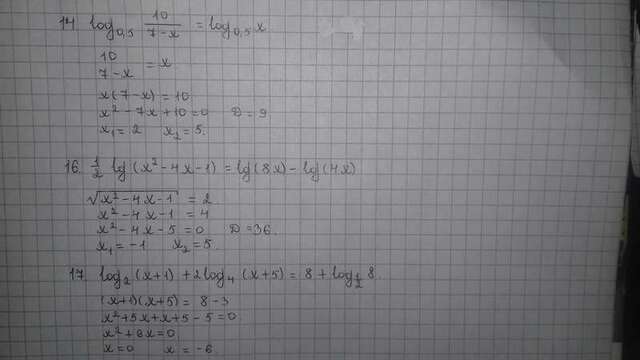 14. log₀,₅ 10/(7-x) = log₀,₅ x
10/(7-x) = x
x(7-x) = 10
x² - 7x + 10 = 0 D = 9
x₁ = 2 x₂ = 5.
16. 1/2 lg(x² - 4x - 1) = lg(8x) - lg(4x)
√(x² - 4x - 1) = 2
x² - 4x - 1 = 4
x² - 4x - 5 = 0 D = 36.
x₁ = -1 x₂ = 5
17. log₂(x+1) + 2log₄(x+5) = 8 + log_(1/2) 8.
(x+1)(x+5) = 8 - 3
x² + 5x + x + 5 - 5 = 0
x² + 6x = 0
x = 0 x = -6.